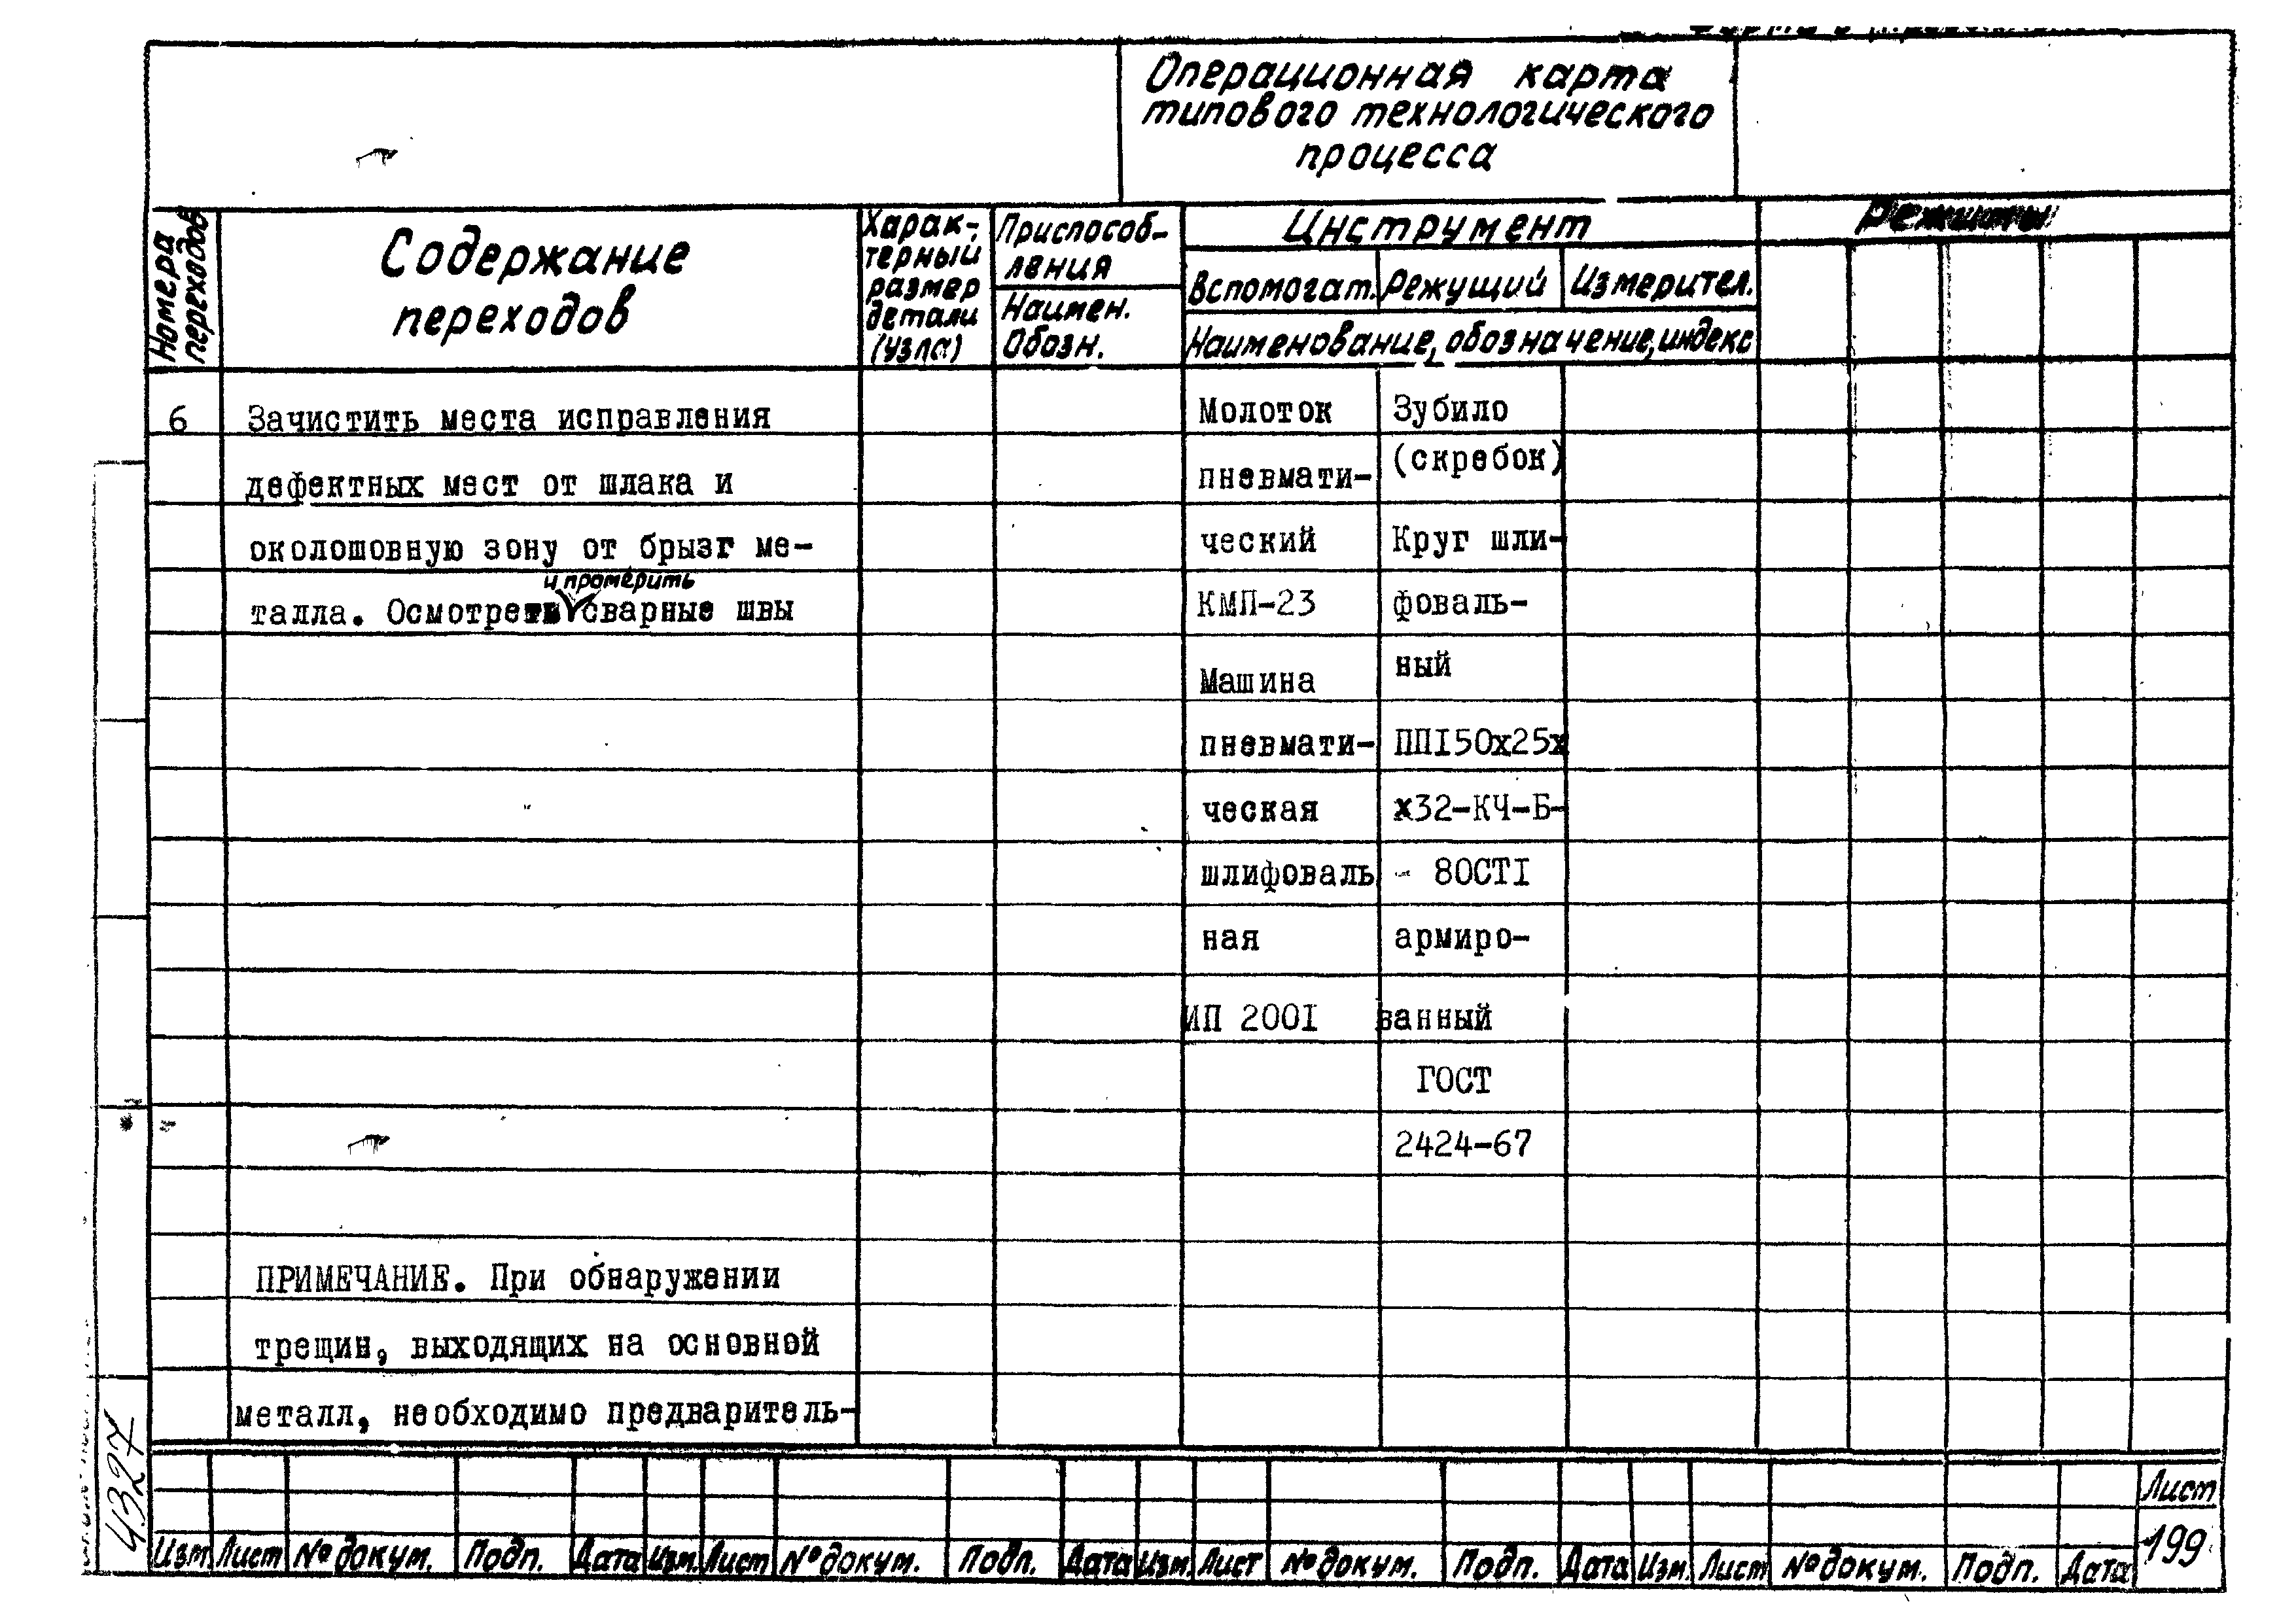 Операционная карта
типового технологического
процесса
Номера
переходов
Содержание
переходов
Харак-
терный
размер
детали
(узла)
Приспособ-
ления
Наимен.
Обозн.
Инструмент
Вспомогат. Режущий Измерител.
Наименование, обозначение, индекс
Режимы
6 Зачистить места исправления
дефектных мест от шлака и
околошовную зону от брызг ме-
и промерить
талла. Осмотреть сварные швы
Молоток
пневмати-
ческий
КМП-23
Машина
пневмати-
ческая
шлифоваль
ная
ИП 2001
Зубило
(скребок)
Круг шли-
фоваль-
ный
ПП150х25х
х32-КЧ-Б-
- 80СТ1
армиро-
ванный
ГОСТ
2424-67
ПРИМЕЧАНИЕ. При обнаружении
трещин, выходящих на основной
металл, необходимо предваритель-
4327
Изм Лист № докум. Подп. Дата Изм. Лист № докум. Подп. Дата Изм. Лист № докум. Подп. Дата Изм. Лист № докум. Подп. Дата
Лист
199